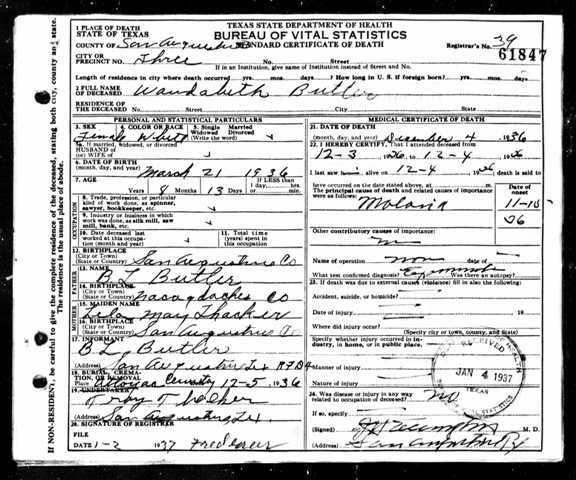 TEXAS STATE DEPARTMENT OF HEALTH
BUREAU OF VITAL STATISTICS
STANDARD CERTIFICATE OF DEATH
1 PLACE OF DEATH
STATE OF TEXAS
COUNTY OF San Augustine
Registrar's No. 39
61847
CITY OR
PRECINCT NO. Three No. Street
If in an Institution, give name of institution instead of Street and No.
Length of residence in city where death occurred yrs. mos. days. How long in U. S. if foreign born? yrs. mos. days
2 FULL NAME
OF DECEASED Wandabeth Butler
RESIDENCE OF
THE DECEASED No. Street City State
PERSONAL AND STATISTICAL PARTICULARS
3. SEX 4. COLOR OR RACE 5. Single Married
Widowed Divorced
(Write the word)
Female White
5a. If married, widowed, or divorced
HUSBAND OF
(or) WIFE OF
6. DATE OF BIRTH
(month, day, and year) March 21 1936
7. AGE
Years 8 Months 13 Days
If LESS than
1 day, hrs.
or min.
OCCUPATION
8. Trade, profession, or particular
kind of work done, as spinner,
sawyer, bookkeeper, etc.
9. Industry or business in which
work was done, as silk mill, saw
mill, bank, etc.
10. Date deceased last
worked at this occupation
(month and year)
11. Total time
(years) spent in
this occupation
12. BIRTHPLACE
(City or Town)
(State or Country) San Augustine Co
FATHER
13. NAME
B L Butler
14. BIRTHPLACE
(City or Town)
(State or Country) Nacogdoches Co
MOTHER
15. MAIDEN NAME
Lela May Thacker
16. BIRTHPLACE
(City or Town)
(State or Country) San Augustine Co
17. INFORMANT
B L Butler
(Address) San Augustine Tex RFD 4
18. BURIAL, CREMATION
OR REMOVAL
12-5 1936
19. UNDERTAKER
(Address) San Augustine Tex.
20. SIGNATURE OF REGISTRAR
FILE
DATE 1-2 1937
MEDICAL CERTIFICATE OF DEATH
21. DATE OF DEATH
(month, day, and year) December 4 1936
22. I HEREBY CERTIFY, That I attended deceased from
12-3 1936, to 12-4 1936
I last saw alive on 12-4 1936, death is said to
have occurred on the date stated above, at m.
The principal cause of death and related causes of importance
were as follows:
Date of
onset
Malaria 11-15
36
Other contributory causes of importance:
Name of operation non
What test confirmed diagnosis? Was there an autopsy?
23. If death was due to external causes (violence) fill in also the following:
Accident, suicide, or homicide?
Date of injury 19
Where did injury occur?
(Specify city or town, county, and state)
Specify whether injury occurred in industry, in home, or in public place.
Manner of injury
Nature of injury
24. Was disease or injury in any way
related to occupation of deceased? no
If so, specify
(Signed) M. D.
(Address) San Augustine Tex
RECEIVED
JAN 4 1937
TEXAS